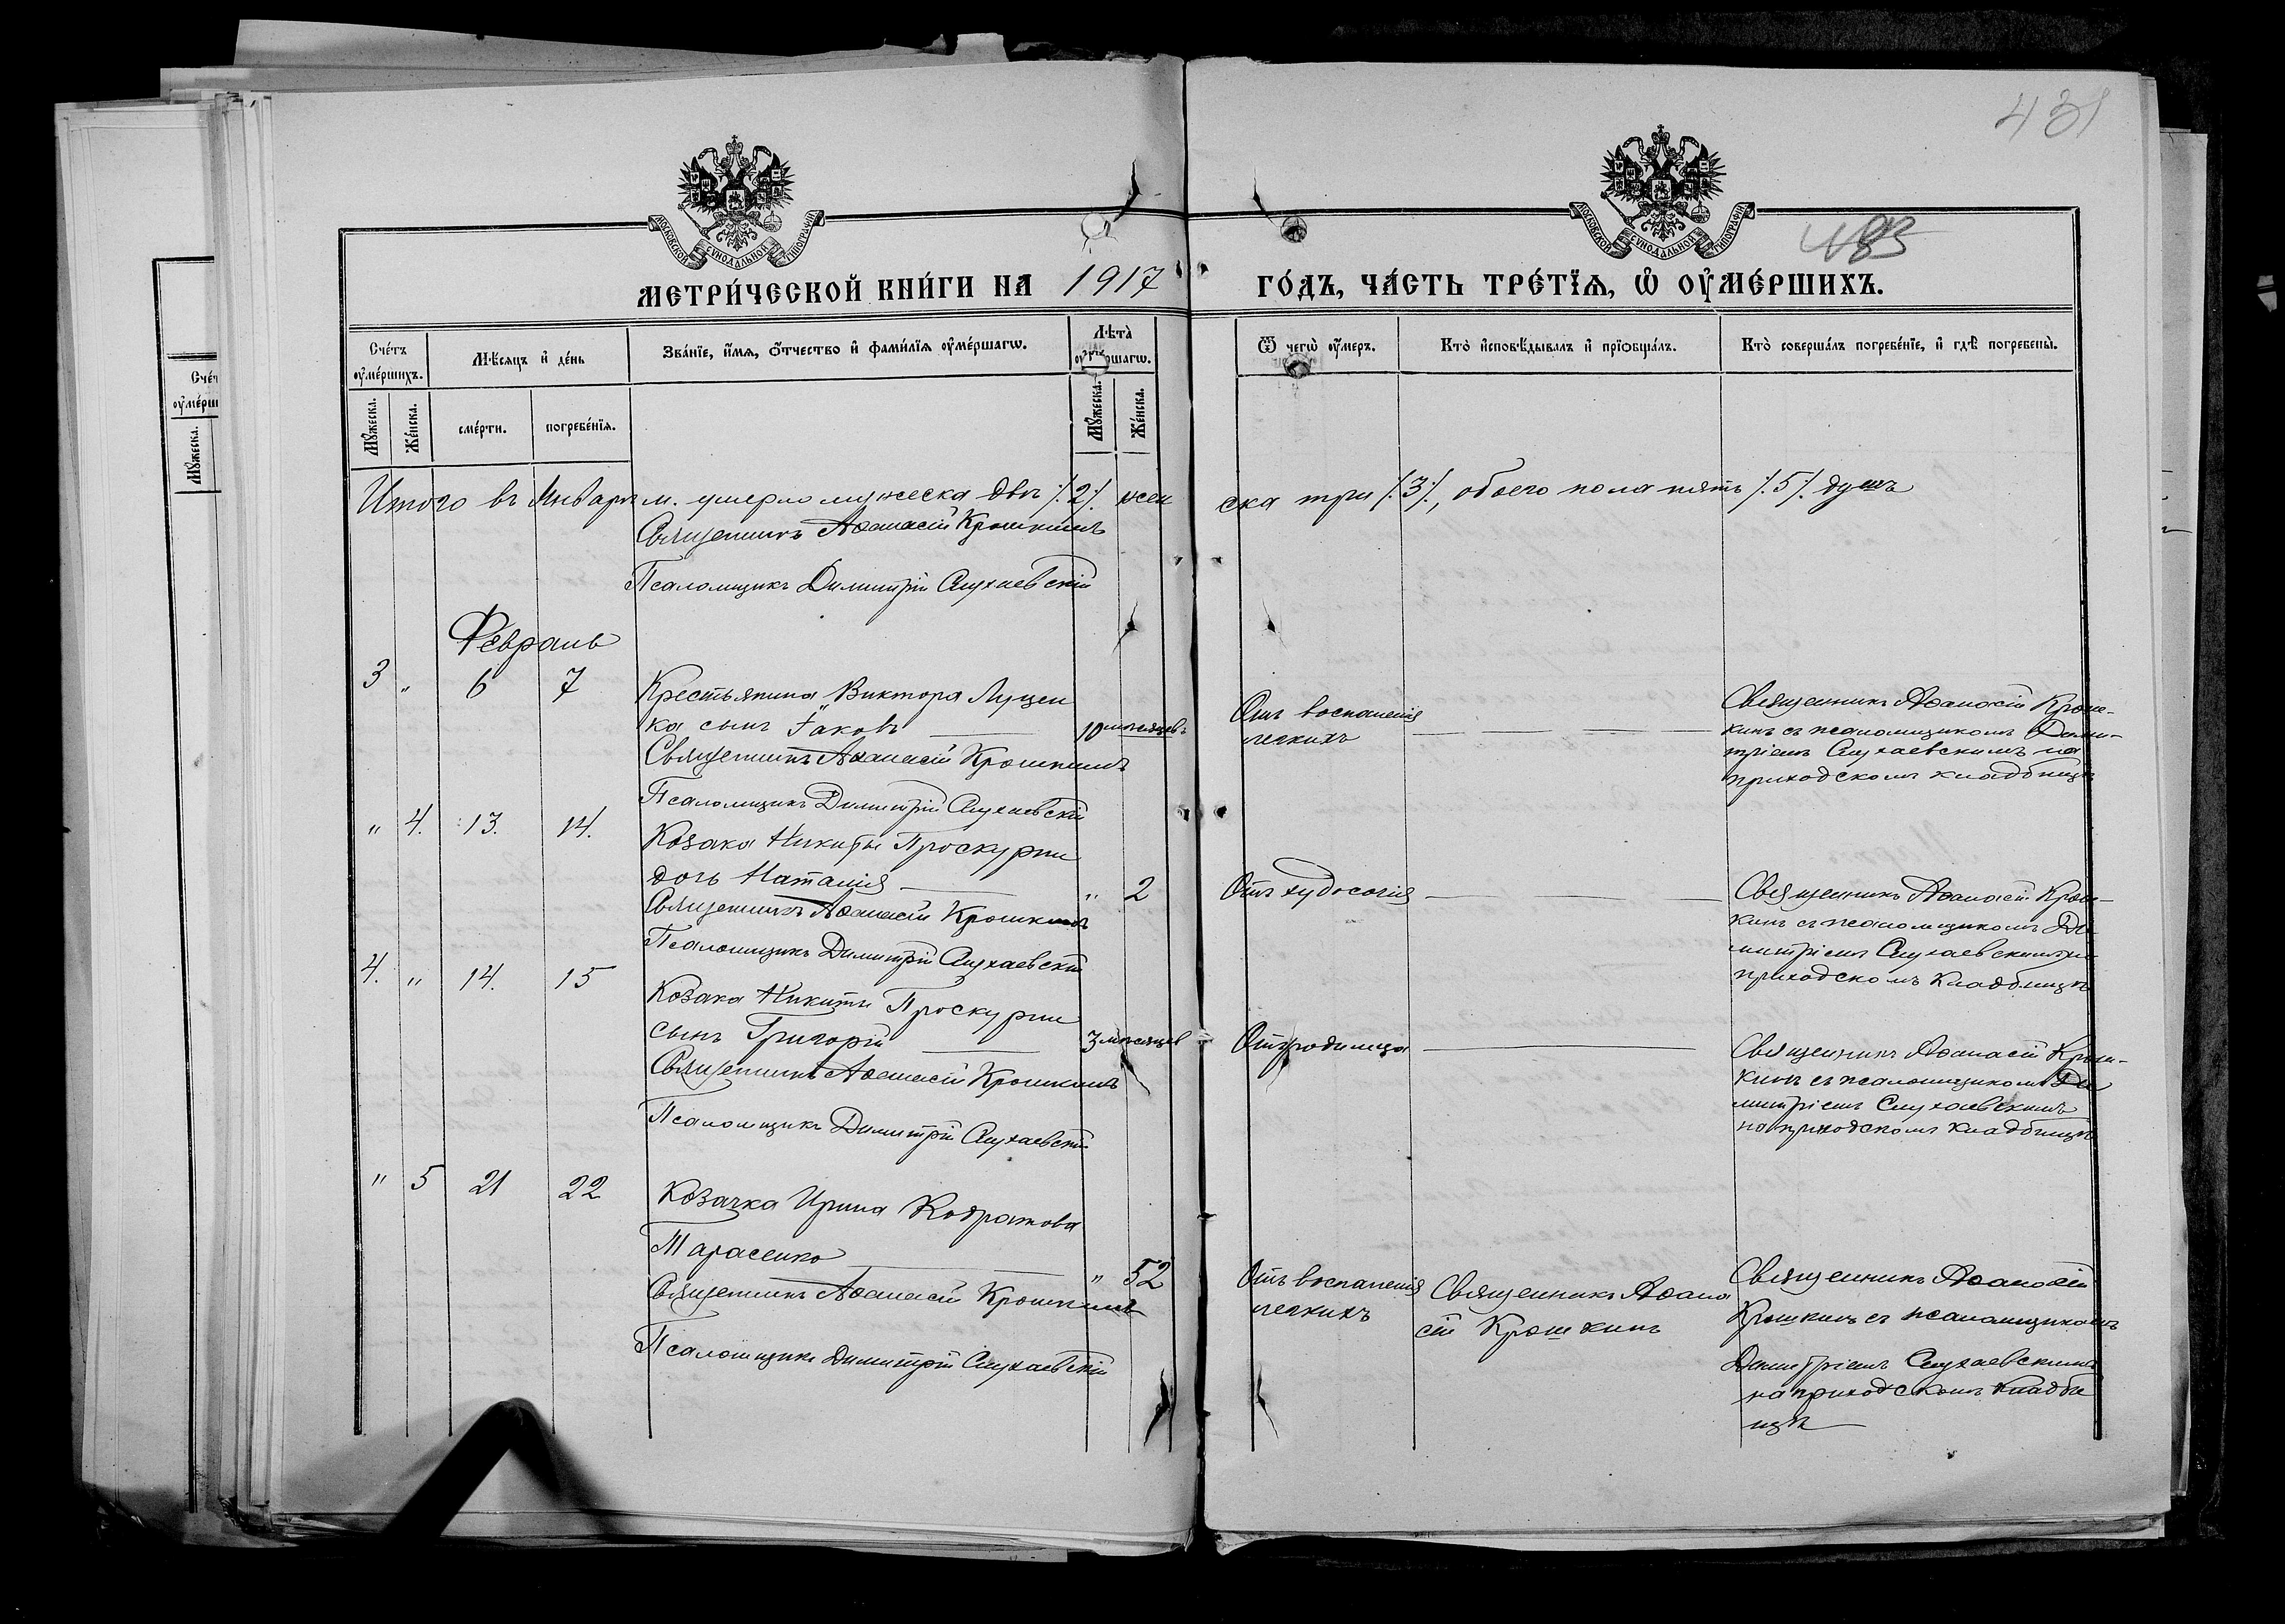 431
МОСКОВСКОЙ СѴНОДАЛЬНОЙ ТИПОГРАФІИ
МОСКОВСКОЙ СѴНОДАЛЬНОЙ ТИПОГРАФІИ
МЕТРИ́ЧЕСКОЙ КНИ́ГИ НА 1917 ГО́ДЪ, ЧА́СТЬ ТРЕ́ТЇѦ, Ѡ ОУМЕ́РШИХЪ.
Сче́тъ оумéршихъ.
Мѣ́сяцъ и де́нь
Зва́нїе, и́мя, о́тчество и фами́лїя оумéршагѡ.
Лѣта̀ оумéршагѡ.
Ѿ чегѡ̀ оу́меръ.
Кто̀ и҆сповѣ́дывалъ и҆ прїѡбща́лъ.
Кто̀ соверша́лъ погребе́нїе, и҆ гдѣ̀ погребены̀.
Мꙋ́жеска.
Же́нска.
сме́рти.
погребе́нїя.
Мꙋ́жеска.
Же́нска.
Итого въ Январѣ м. умерло мужеска два /.2/. жен
ска три /.3/., обоего пола пять /.5/. душъ
Священникъ Аѳанасій Крошкинъ
Псаломщикъ Димитрій Слухаевскій
Февраль
3 " 6 7 Крестьянина Виктора Луцен
ка сынъ Іаковъ 10 мѣсяцевъ
Священникъ Аѳанасій Крошкинъ
Псаломщикъ Димитрій Слухаевскій
Отъ воспаленія
легкихъ
Священникъ Аѳанасій Крош-
кинъ съ псаломщикомъ Дими-
тріемъ Слухаевскимъ на
приходскомъ кладбищѣ
" 4. 13. 14. Козака Никиты Проскурни
дочь Наталія " 2
Священникъ Аѳанасій Крошкинъ
Псаломщикъ Димитрій Слухаевскій
Отъ худосочія
Священникъ Аѳанасій Крош-
кинъ съ псаломщикомъ Ди
митріемъ Слухаевскимъ на
приходскомъ кладбищѣ
4. " 14. 15 Козака Никиты Проскурни
сынъ Григорій 3 мѣсяцев
Священникъ Аѳанасій Крошкинъ
Псаломщикъ Димитрій Слухаевскій
Отъ родимца
Священникъ Аѳанасій Крош-
кинъ съ псаломщикомъ Ди
митріемъ Слухаевскимъ
на приходскомъ кладбищѣ
" 5 21 22 Козачка Ирина Кодратова
Тарасенко " 52
Священникъ Аѳанасій Крошкинъ
Псаломщикъ Димитрій Слухаевскій
Отъ воспаленія
легкихъ
Священникъ Аѳана
сій Крошкинъ
Священникъ Аѳанасій
Крошкинъ съ псаломщикомъ
Димитріемъ Слухаевскимъ
на приходскомъ кладби
щѣ
Мꙋ́жеска.